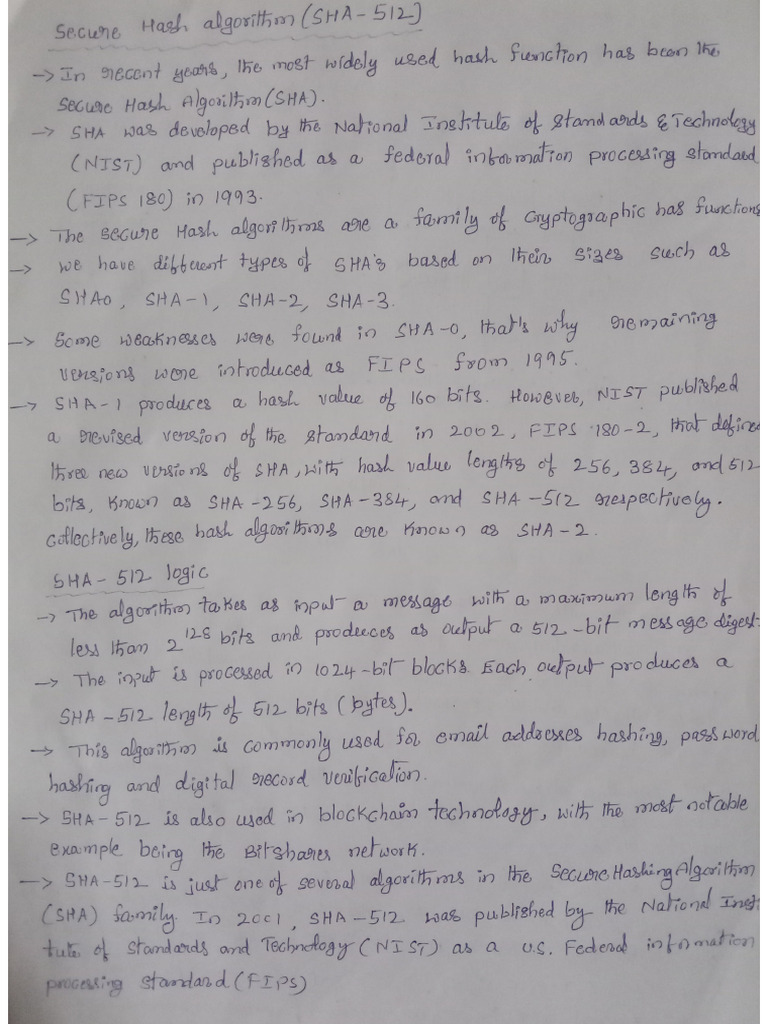 Secure Hash algorithm (SHA-512)
→ In recent years, the most widely used hash function has been the
Secure Hash Algorithm (SHA).
→ SHA was developed by the National Institute of Standards & Technology
(NIST) and published as a federal information processing standard
(FIPS 180) in 1993.
→ The secure Hash algorithms are a family of Cryptographic has functions
→ we have different types of SHA's based on their sizes such as
SHA0, SHA-1, SHA-2, SHA-3.
→ Some weaknesses were found in SHA-0, that's why remaining
versions were introduced as FIPS from 1995.
→ SHA-1 produces a hash value of 160 bits. However, NIST published
a revised version of the standard in 2002, FIPS 180-2, that defined
three new versions of SHA, with hash value lengths of 256, 384, and 512
bits, known as SHA-256, SHA-384, and SHA-512 respectively.
Collectively, these hash algorithms are known as SHA-2.
SHA-512 logic
→ The algorithm takes as input a message with a maximum length of
less than 2^128 bits and produces as output a 512-bit message digest.
→ The input is processed in 1024-bit blocks. Each output produces a
SHA-512 length of 512 bits (bytes).
→ This algorithm is commonly used for email addresses hashing, password
hashing and digital record verification.
→ SHA-512 is also used in blockchain technology, with the most notable
example being the BitShares network.
→ SHA-512 is just one of several algorithms in the Secure Hashing Algorithm
(SHA) family. In 2001, SHA-512 was published by the National Insti
tute of Standards and Technology (NIST) as a U.S. Federal information
processing standard (FIPS)